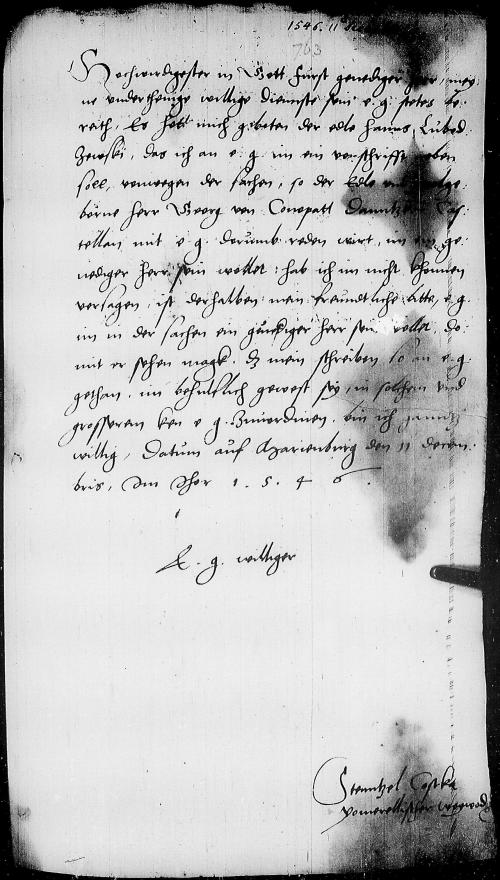 1546. 11
763
Hochwirdigester in Gott Furst genediger herr, mey-
ne underthenige willige dienste sein e. g. stetes be-
reith, Es hott mich gebeten der edle Hanns Lubod-
zewski, das ich an e. g. im ein vorschrifft geben
soll, vonwegen der sachen, so der Edle und wolge-
borne herr Georg von Conopatt Dantzker Cas-
tellan mit e. g. dorumb reden wirt, im ein ge-
nediger herr sein wollet: hab ich im nicht khonnen
versagen, ist derhalben mein freundtliche bitte, e. g.
im in der sachen ein genediger herr sein wollet, do-
mit er sehen magk, dz mein schreiben so an e. g.
gethan, im behulflich gewest sey, in solchem und
grosserem ken e. g. zuvordinen, bin ich gantz
willig, Datum auf Marienburg den 11 decem-
bris, Im Jhor 1. 5. 4 6.
E. g. williger
Stentzel Costka
pomerellischer woywod